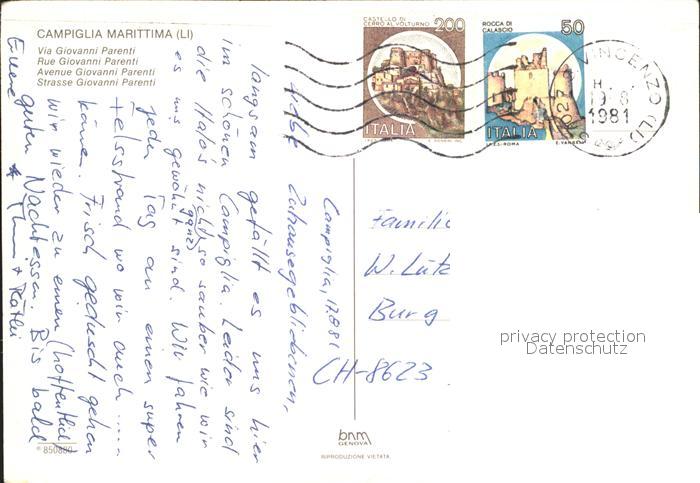 CAMPIGLIA MARITTIMA (LI)
Via Giovanni Parenti
Rue Giovanni Parenti
Avenue Giovanni Parenti
Strasse Giovanni Parenti
CASTELLO DI
CERRO AL VOLTURNO
200
ITALIA
ROCCA DI
CALASCIO
50
ITALIA
I.P.Z.S.-ROMA
VINCENZO (LI)
19.8
1981
57027
Campiglia, 12.8.81
Zuhausegebliebenen,
langsam gefällt es uns hier
im schönen Campiglia. Leider sind
die nicht so sauber wie wir
es uns (ganz) gewöhnt sind. Wir fahren
jeden Tag an einen super
Felsstrand wo wir auch .....
können. Frisch geduscht gehen
wir wieder zu einem (hoffentlich)
guten Nachtessen. Bis bald
Familie
W. Lütz
Burg
CH-8623
privacy protection
Datenschutz
bnm
GENOVA
RIPRODUZIONE VIETATA
850880